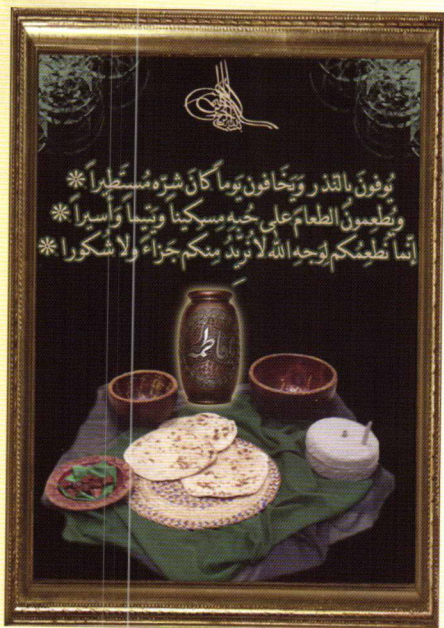 يُوفونَ بالنّذرِ وَيَخَافون يَوماً كانَ شرّه مُستَطيراً *
ويُطعِمونُ الطعامَ على حُبّهِ مِسكيناً وَيَتيماً وَأسيراً *
إنّما نُطعِمُكم لِوَجهِ اللهُ لا نُريْدُ مِنكم جَزاءً ولا شُكورا *
فاطمة